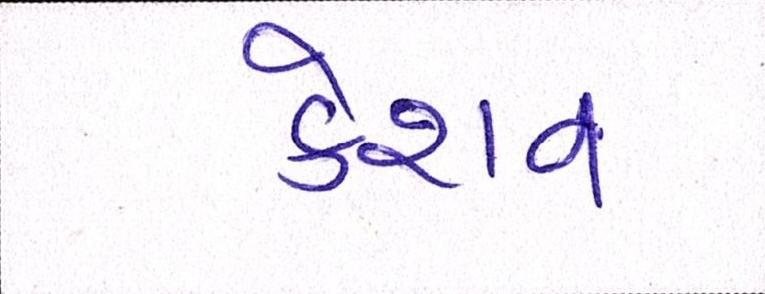 કેશવ